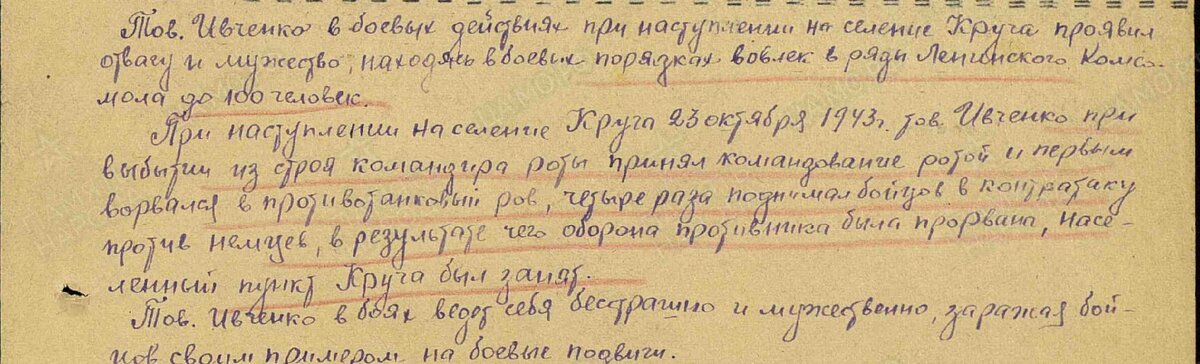 Тов. Ивченко в боевых действиях при наступлении на селение Круча проявил
отвагу и мужество, находясь в боевых порядках вовлек в ряды Ленинского Комсо-
мола до 100 человек.
При наступлении на селение Круча 23 октября 1943г. тов. Ивченко при
выбытии из строя командира роты принял командование ротой и первым
ворвался в противотанковый ров, четыре раза поднимал бойцов в контратаку
против немцев, в результате чего оборона противника была прорвана, насе-
ленный пункт Круча был занят.
Тов. Ивченко в боях ведет себя бесстрашно и мужественно, заражая бой-
цов своим примером на боевые подвиги.